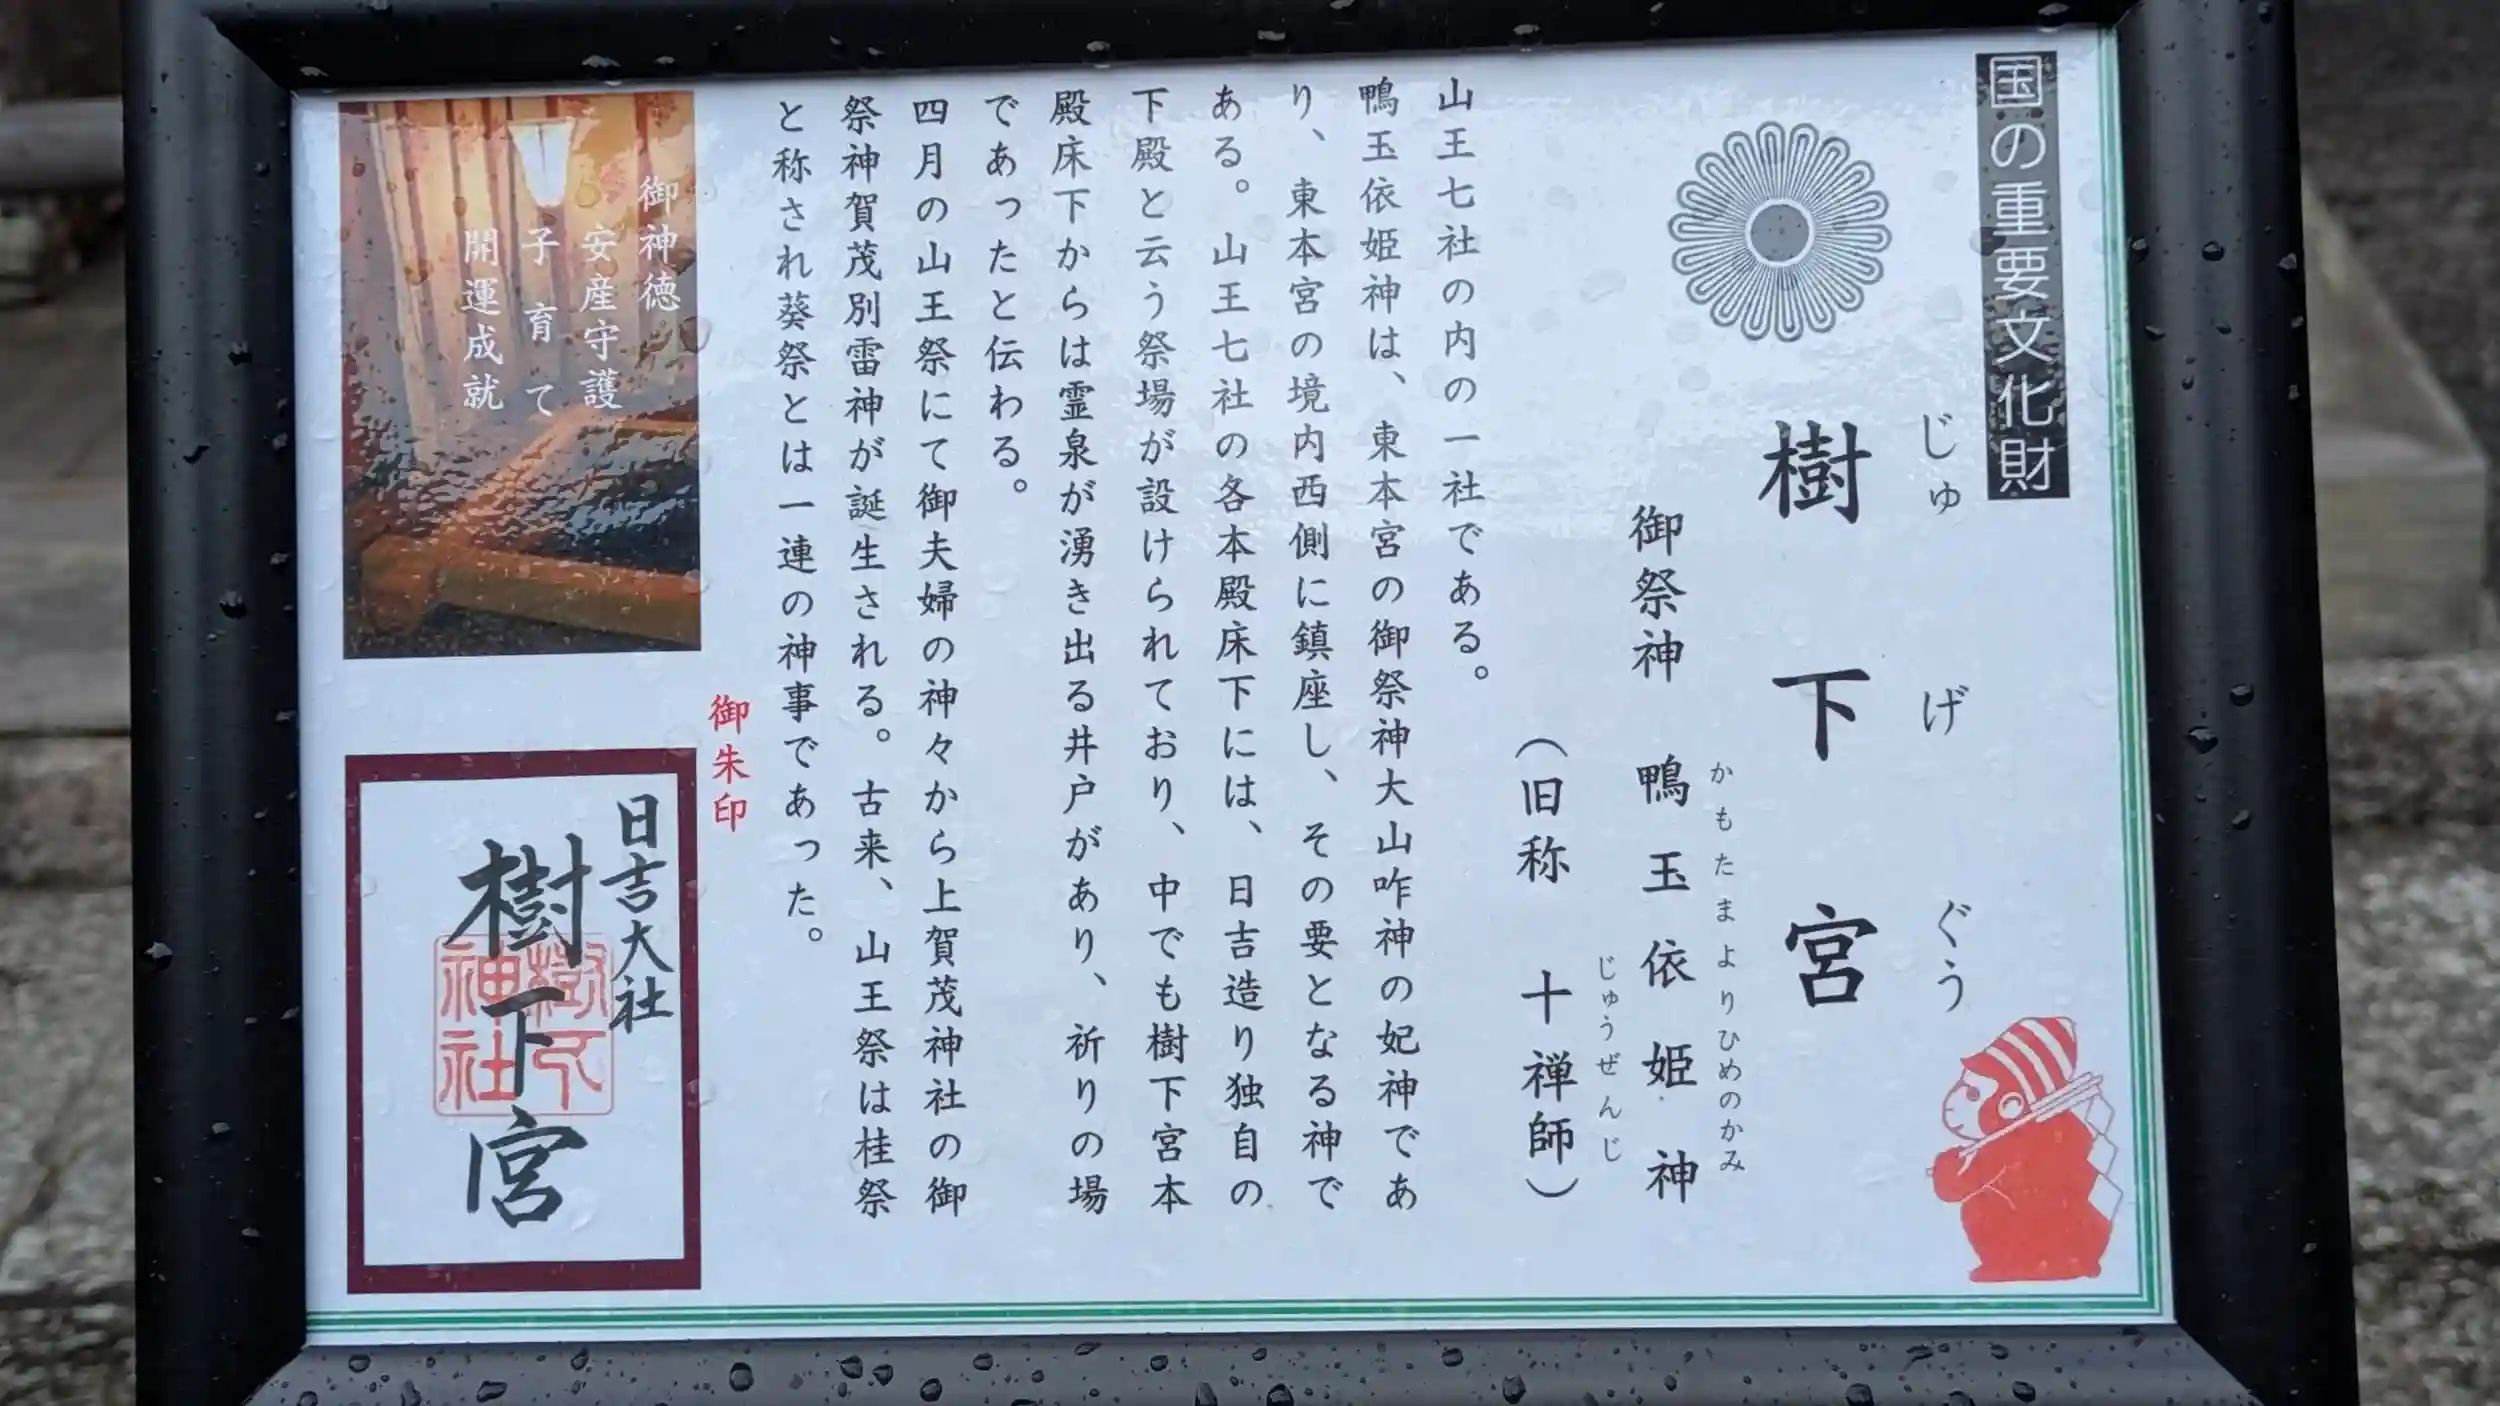 国の重要文化財
じゅ げ ぐう
樹下宮
御祭神 鴨玉依姫神
かもたまよりひめのかみ
(旧称 十禅師)
じゅうぜんじ
山王七社の内の一社である。
鴨玉依姫神は、東本宮の御祭神大山咋神の妃神であ
り、東本宮の境内西側に鎮座し、その要となる神で
ある。山王七社の各本殿床下には、日吉造り独自の
下殿と云う祭場が設けられており、中でも樹下宮本
殿床下からは霊泉が湧き出る井戸があり、祈りの場
であったと伝わる。
四月の山王祭にて御夫婦の神々から上賀茂神社の御
祭神賀茂別雷神が誕生される。古来、山王祭は桂祭
と称され葵祭とは一連の神事であった。
御神徳
安産守護
子育て
開運成就
御朱印
日吉大社
樹下宮
樹下
神社